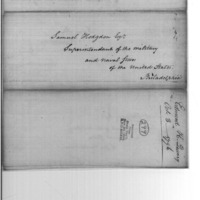 Samuel Hodgdon Esqr
Superintendent of the military
and naval Stores
of the United States
Philadelphia
Edward
Oct 3 1796